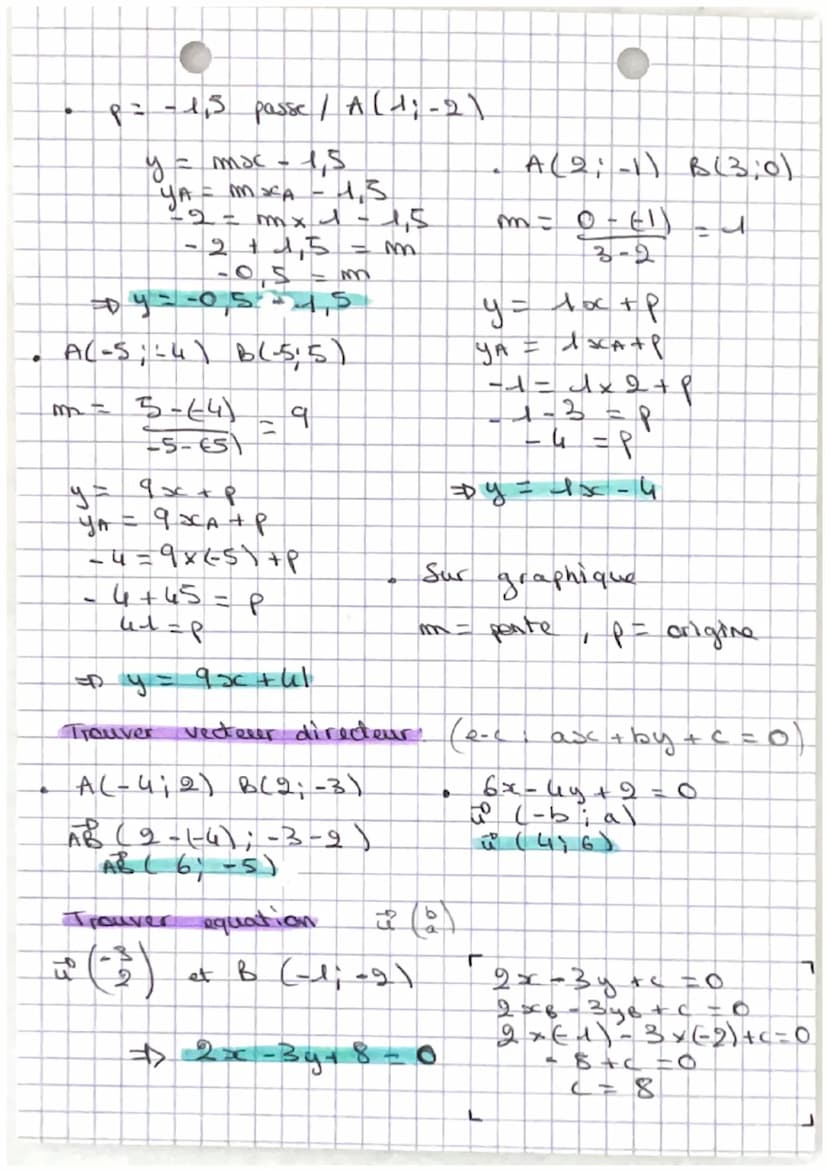 • p = -1,5 passe / A(1; -2)
y = mx - 1,5
yA = mxA - 1,5
-2 = m × 1 - 1,5
-2 + 1,5 = m
-0,5 = m
⇒ y = -0,5 - 1,5
• A(-5; -4) B(-5; 5)
m = 5-(-4) / -5-(-5) = 9
y = 9x + p
yA = 9xA + p
-4 = 9×(-5) + p
-4 + 45 = p
41 = p
⇒ y = 9x + 41
• A(2; -1) B(3; 0)
m = 0 - (-1) / 3 - 2 = 1
y = 1x + p
yA = 1xA + p
-1 = 1 × 2 + p
-1 - 3 = p
-4 = p
⇒ y = 1x - 4
• Sur graphique
m = pente, p = origine
Trouver vecteur directeur (e-c : ax + by + c = 0)
• A(-4; 2) B(2; -3)
AB⃗ (2-(-4); -3-2)
AB⃗ (6; -5)
• 6x - 4y + 2 = 0
u⃗ (-b; a)
u⃗ (4; 6)
Trouver equation u⃗ (b a)
u⃗ (-3 2) et B (-1; -2)
⇒ 2x - 3y + 8 = 0
2x - 3y + c = 0
2xB - 3yB + c = 0
2×(-1) - 3×(-2) + c = 0
- 8 + c = 0
c = 8